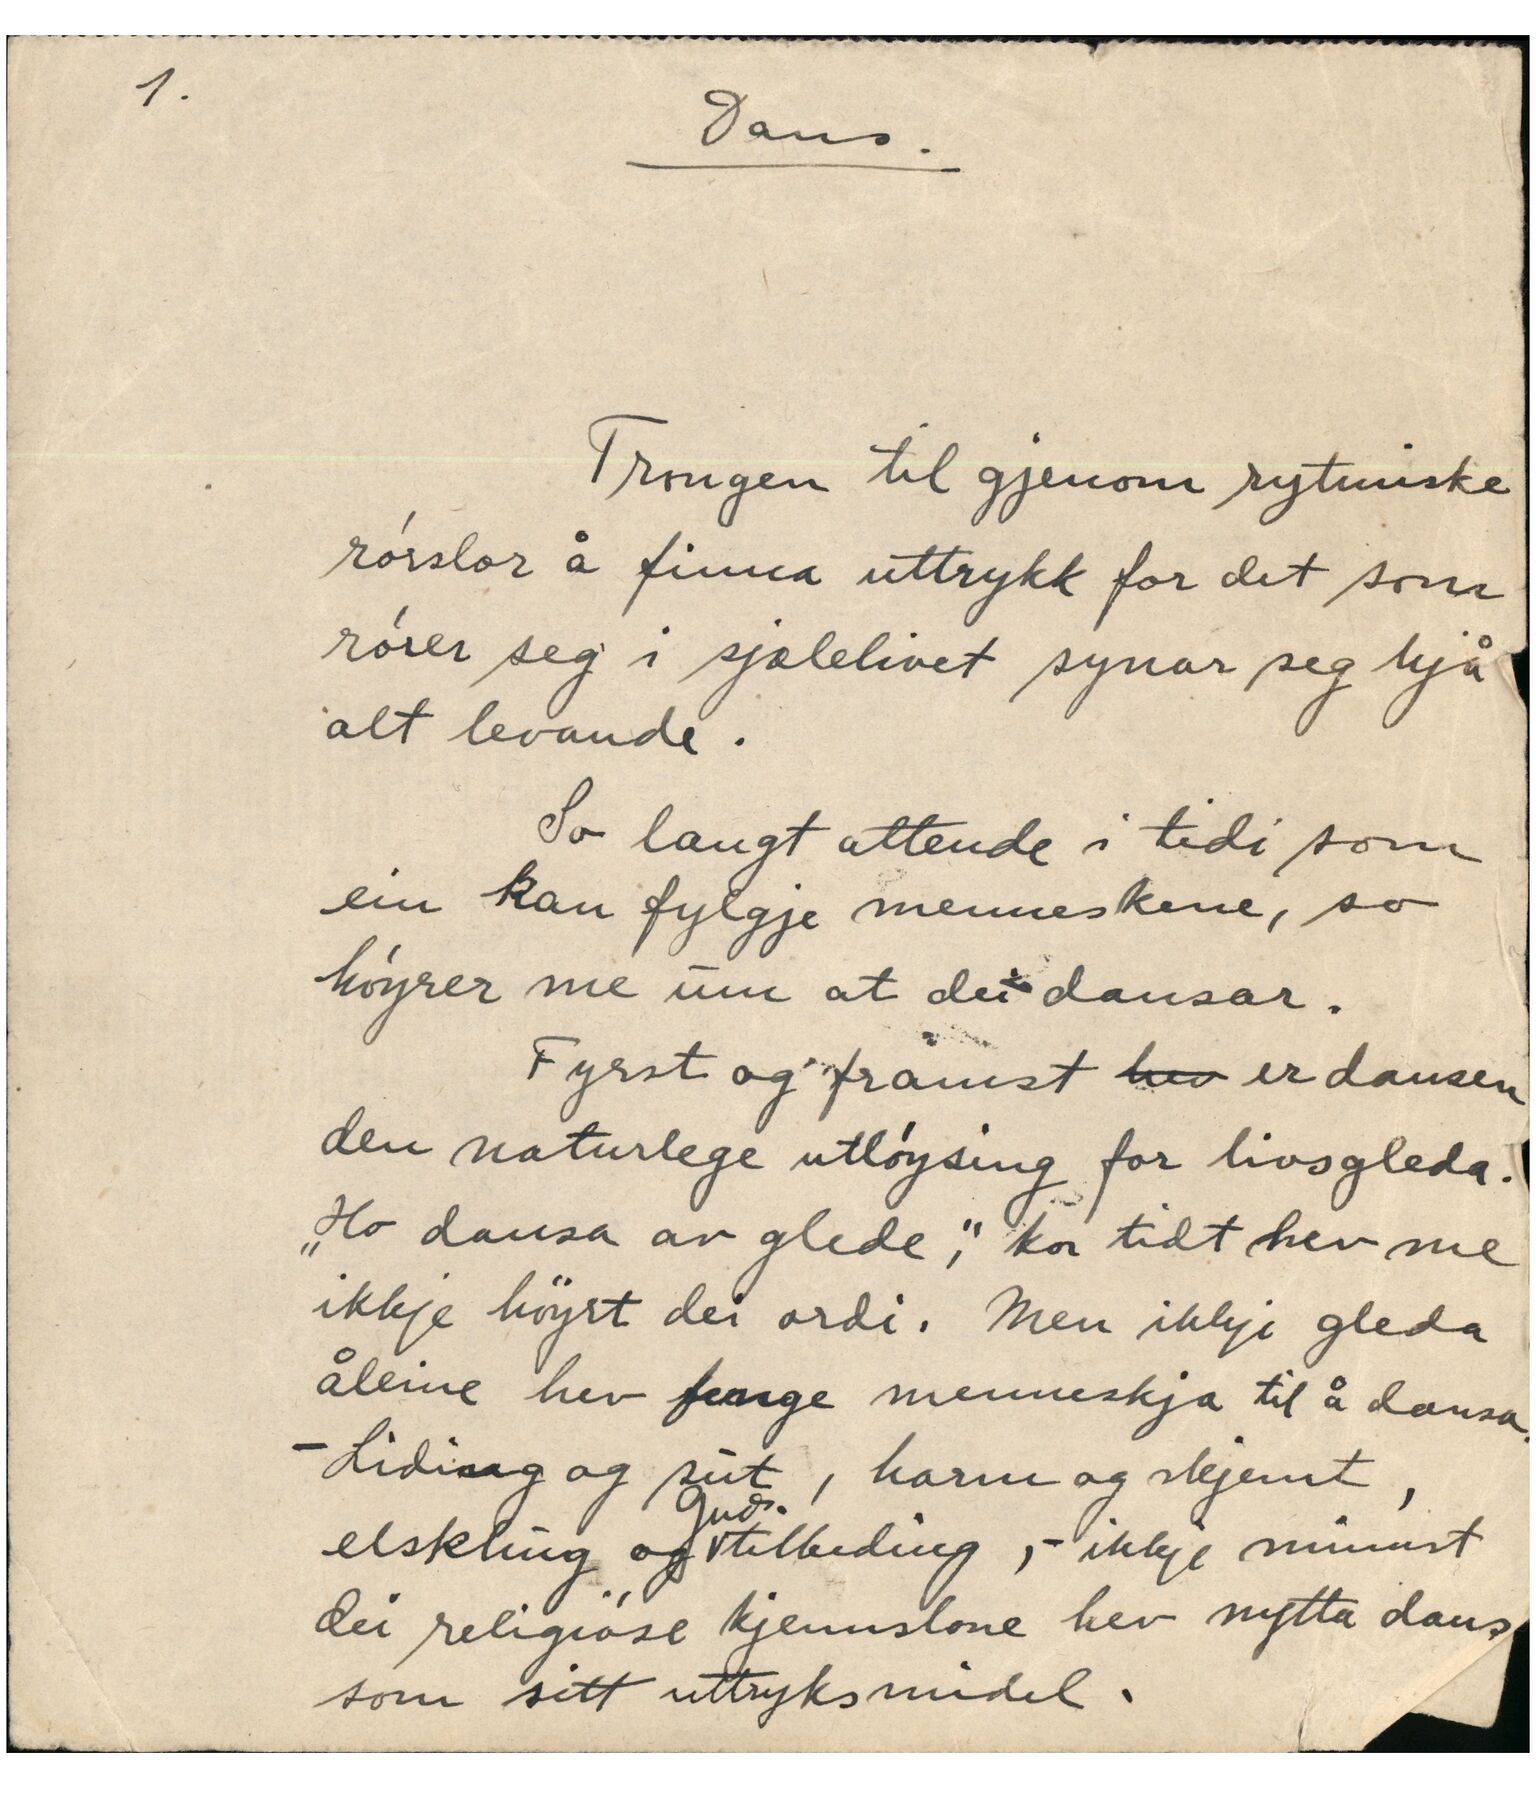 1.
Dans.
Trongen til gjenom rytmiske
rórslor å finna uttrykk for det som
rórer seg i sjælelivet synar seg hjå
alt levande.
So langt attende i tidi som
ein kan fylgje menneskene, so
hóyrer me um at dei dansar.
Fyrst og framst hev er dansen
den naturlege utlóysing for livsgleda.
„Ho dansa av glede," kor tidt hev me
ikkje höyrt dei ordi. Men ikkje gleda
åleine hev fenge menneskja til å dansa.
- Liding og sut, harm og skjemt,
elskhug og Guds-tilbeding, - ikkje minnst
dei religiöse kjennslone hev nytta dans
som sitt uttryksmidel.